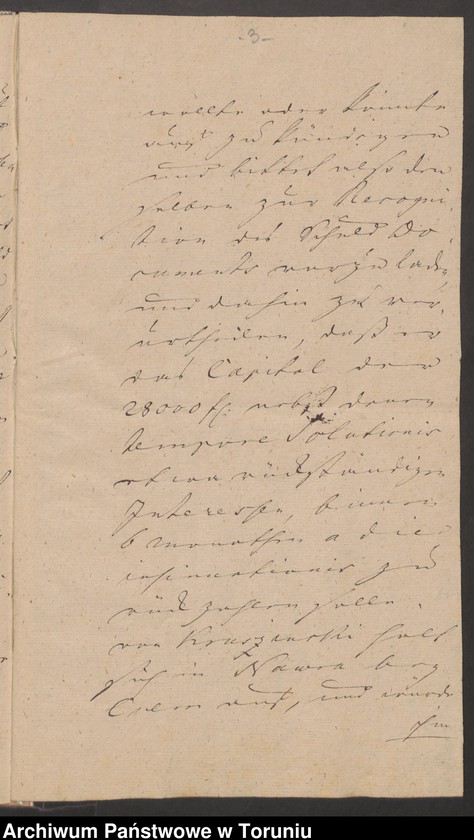 -3-
wollte oder könnte
auf zu kündigen
und bittet also den
selben zur Recogni-
tion des Schuld Do-
cuments vorzuladen
und dahin zu ver-
urtheilen, daß er
das Capital der
28000 f: nebst denen
tempore Solutionis
etwa rückständigen
Interessen, binnen
6 monathen a die
insinuationis zu
rück zahlen solle.
von Kruszinski halt
sich in Nawra bey
Culm auf, und würde
Archiwum Państwowe w Toruniu